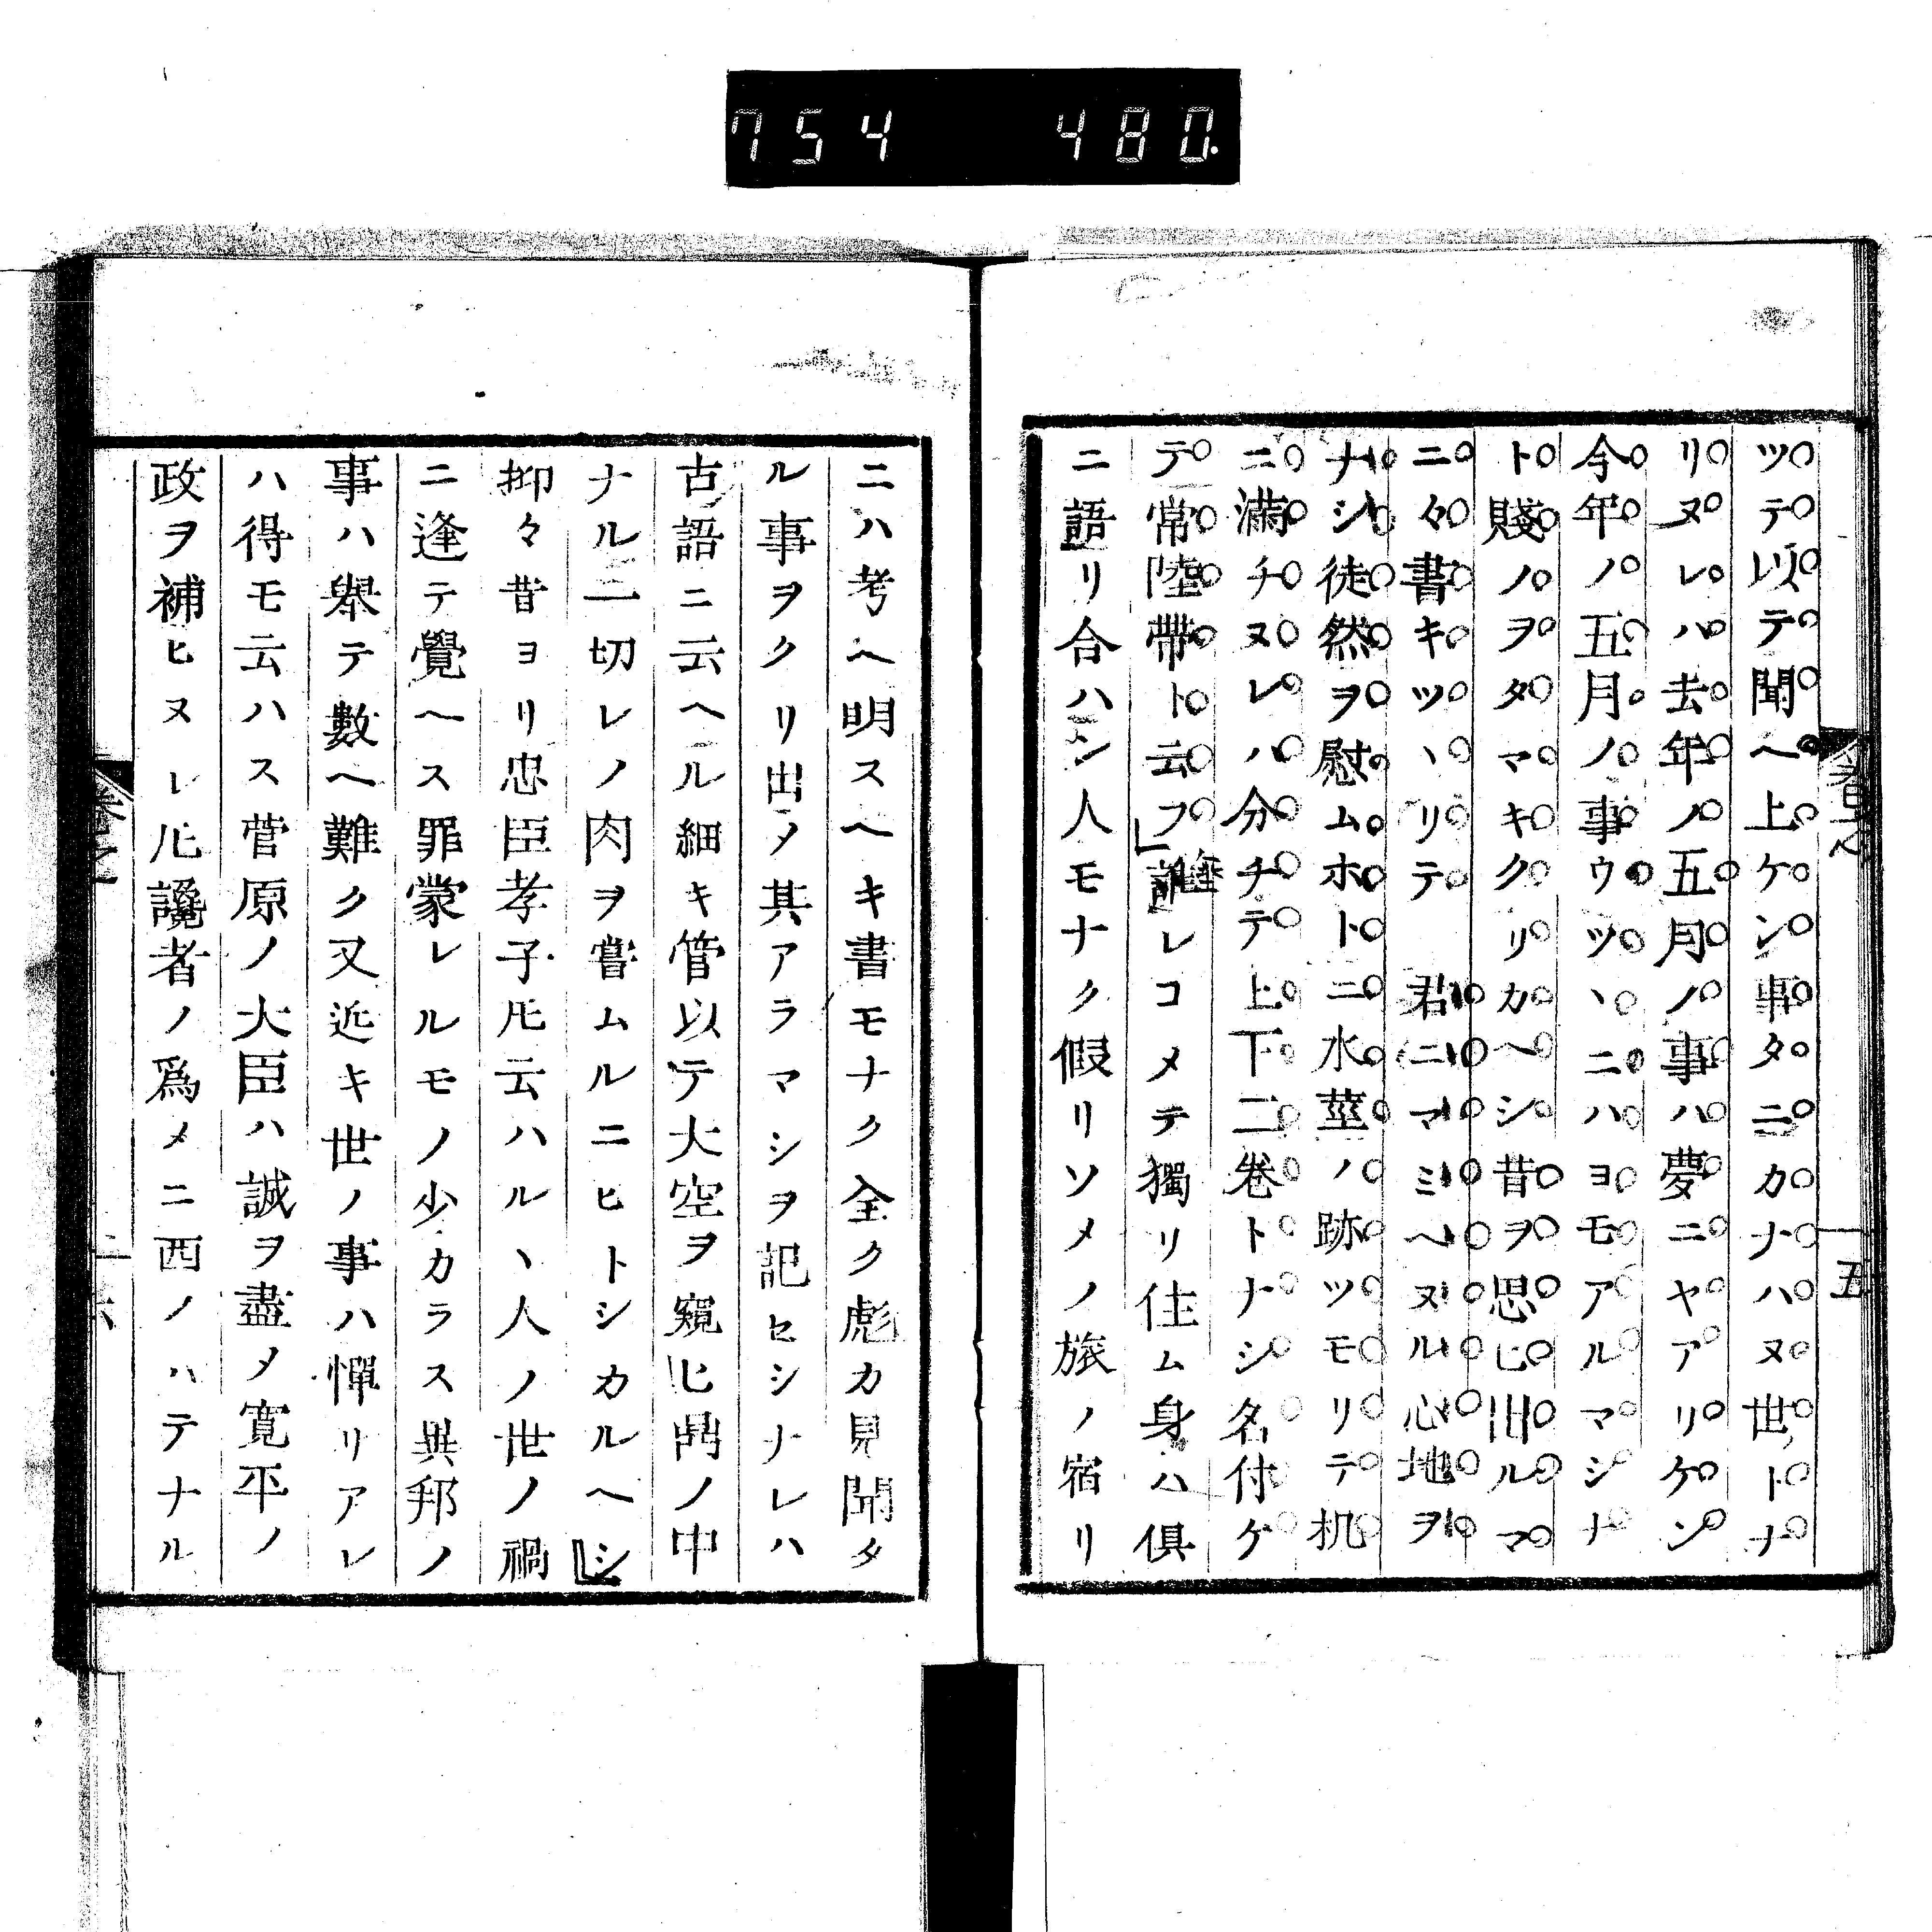 754 480.
ツテ以テ聞ヘ上ケン事タニカナハヌ世トナ
リヌレハ去年ノ五月ノ事ハ夢ニヤアリケン
今年ノ五月ノ事ウツヽニハヨモアルマシナ
ト賤ノヲタマキクリカヘシ昔ヲ思ヒ出ルマ
ニ々書キツヽリテ 君ニマミヘヌル心地ヲ
ナシ徒然ヲ慰ムホトニ水莖ノ跡ツモリテ机
ニ滿チヌレハ分チテ上下二卷トナシ名付ケ
テ常陸帶ト云フレコメテ獨リ住ム身ハ俱
ニ語リ合ハン人モナク假リソメノ旅ノ宿リ
五
ニハ考ヘ明スヘキ書モナク全ク彪カ見聞タ
ル事ヲクリ出メ其アラマシヲ記セシナレハ
古語ニ云ヘル細キ管以テ大空ヲ窺ヒ鼎ノ中
ナル一切レノ肉ヲ嘗ムルニヒトシカルヘシ
抑々昔ヨリ忠臣孝子𪜈云ハルヽ人ノ世ノ禍
ニ逢テ覺ヘス罪蒙レルモノ少カラス異邦ノ
事ハ舉テ數ヘ難ク又近キ世ノ事ハ憚リアレ
ハ得モ云ハス菅原ノ大臣ハ誠ヲ盡メ寛平ノ
政ヲ補ヒヌレ𪜈讒者ノ爲メニ西ノハテナル